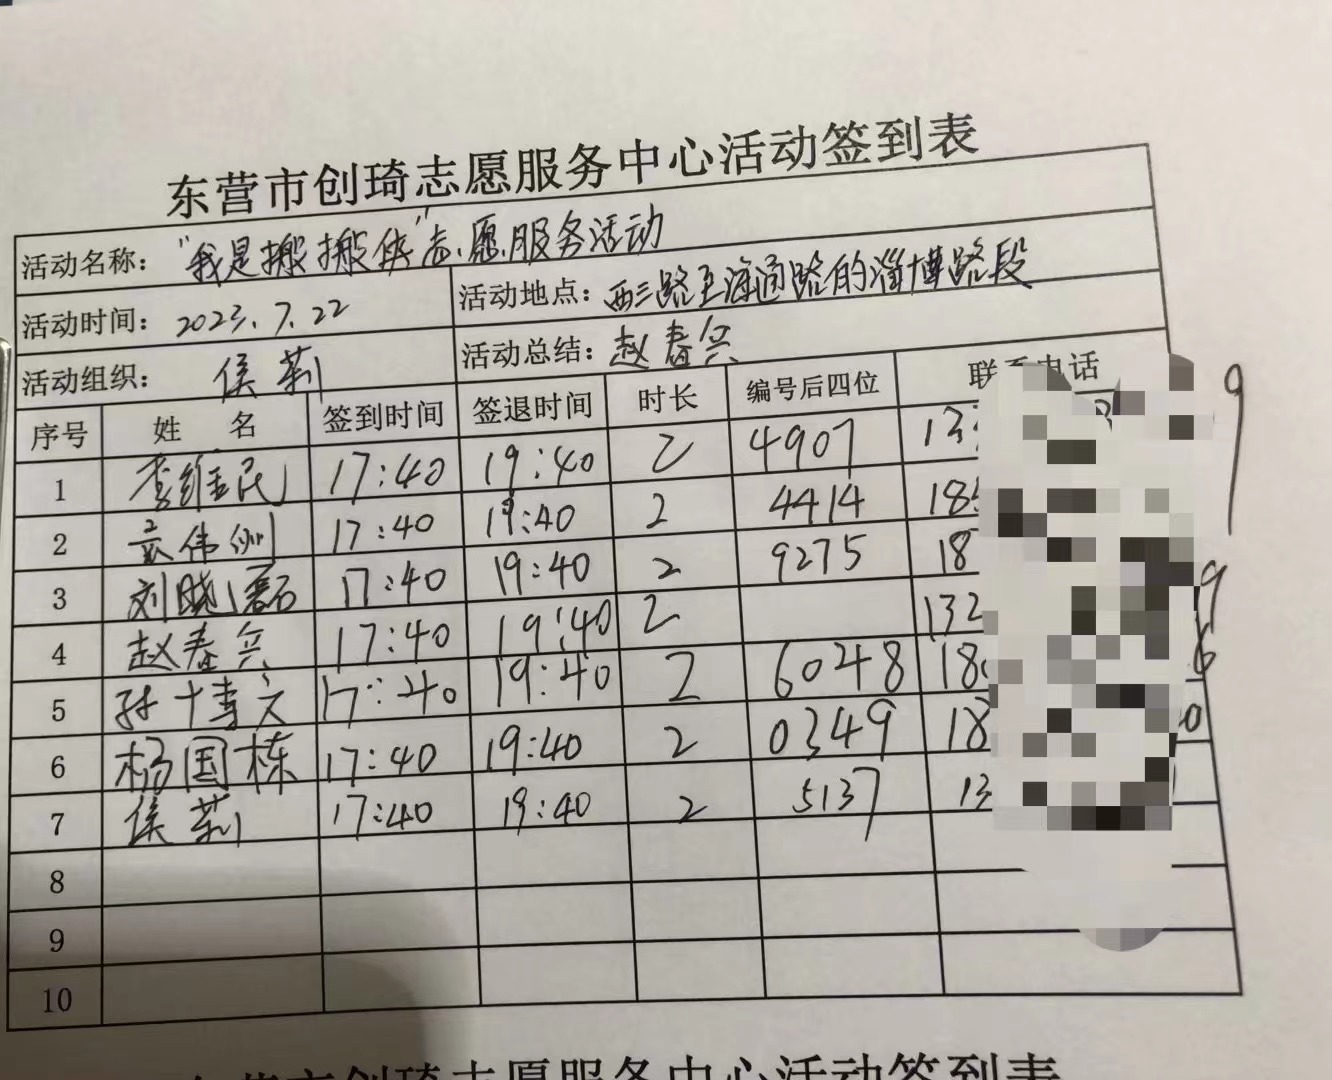 东营市创琦志愿服务中心活动签到表
活动名称：“我是搬搬侠”志愿服务活动
活动时间：2023.7.22 活动地点：西三路至海通路的淄博路段
活动组织：侯莉 活动总结：赵春兴
序号 姓名 签到时间 签退时间 时长 编号后四位 联系电话
1 李维民 17:40 19:40 2 4907 13
2 袁伟 17:40 19:40 2 4414 18
3 刘晓磊 17:40 19:40 2 9275 18
4 赵春兴 17:40 19:40 2 132
5 孙博文 17:40 19:40 2 6048 18
6 杨国栋 17:40 19:40 2 0349 18
7 侯莉 17:40 19:40 2 5137 13
8
9
10
东营市创琦志愿服务中心活动签到表